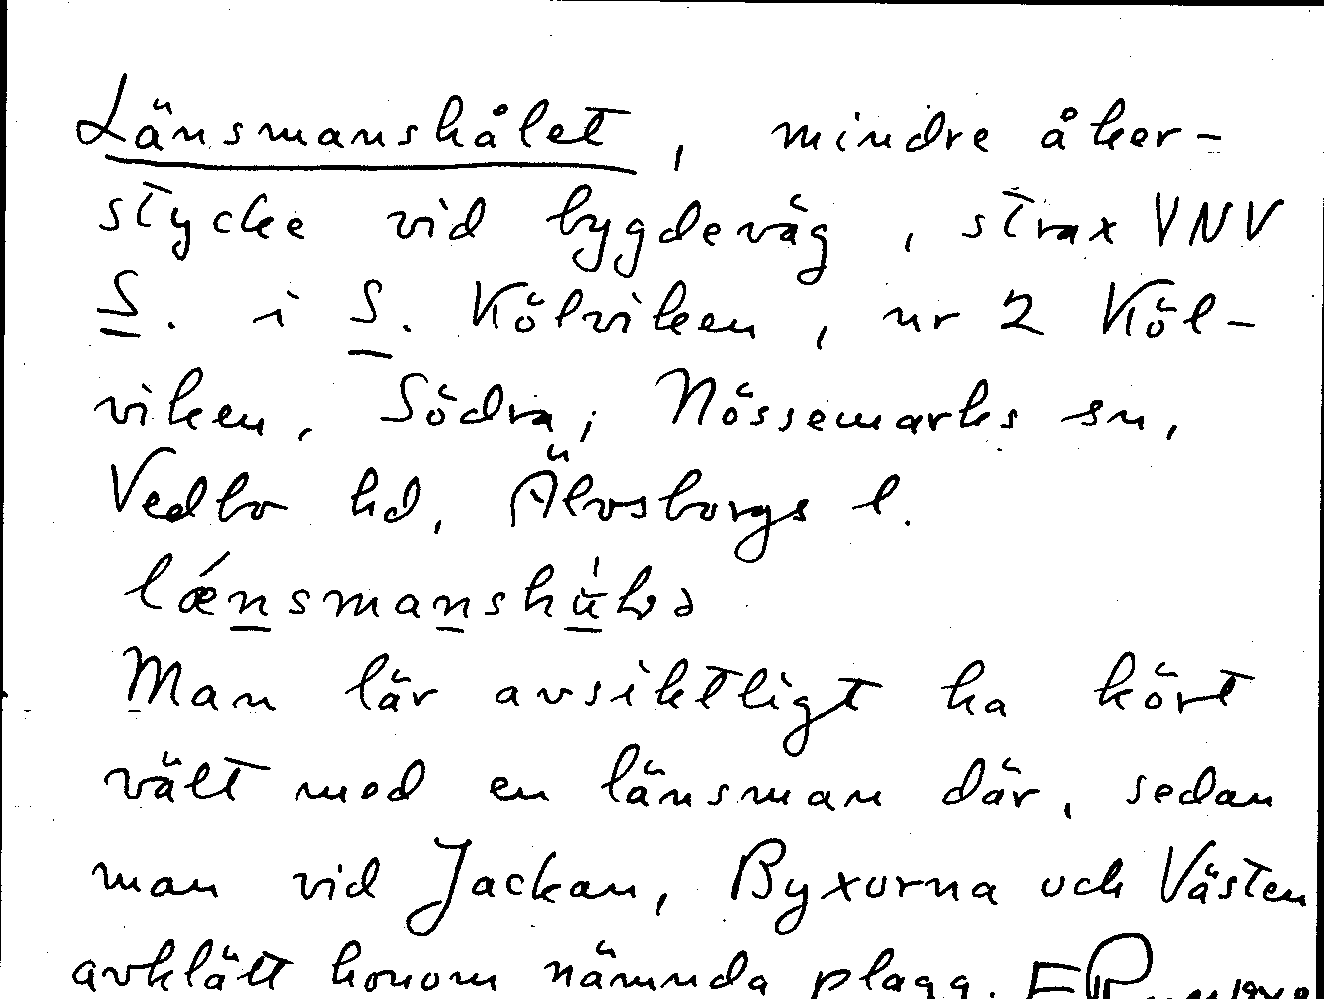 Länsmanshålet, mindre åker-
stycke vid bygdeväg, strax VNV
S. i S. Kölviken, nr 2 Köl-
viken, Södra; Nössemarks sn,
Vedbo hd, Älvsborgs l.
Man lär avsiktligt ha kört
vält med en länsman där, sedan
man vid Jackan, Byxorna och Västen
avklätt honom nämnda plagg.